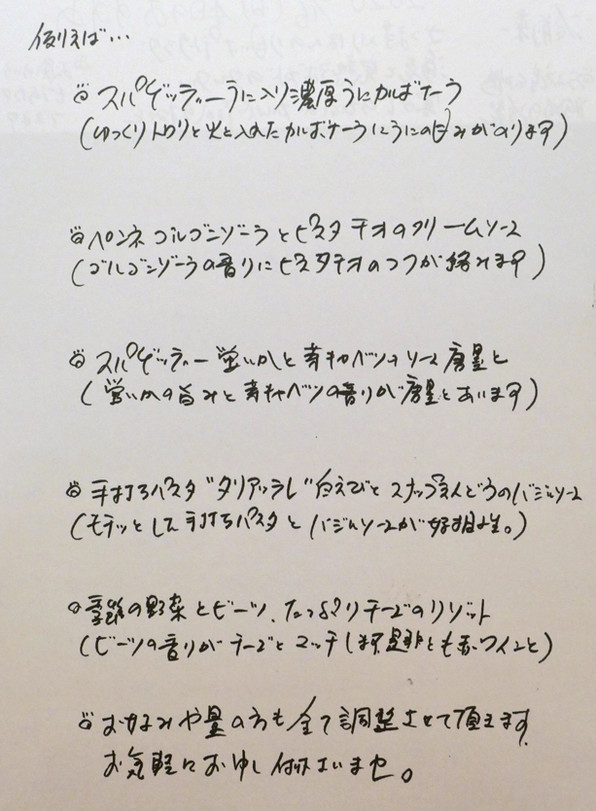 例えば…
スパゲッティーうに入り濃厚うにカルボナーラ
(ゆっくりトロリと火を入れたカルボナーラにうにの甘みがのります)
ペンネ ゴルゴンゾーラとピスタチオのクリームソース
(ゴルゴンゾーラの香りにピスタチオのコクが絡みます)
スパゲッティー 蛍いかと春キャベツのソース
(蛍いかの旨みと春キャベツの香りが あいます)
手打ちパスタ"タリアッテレ"白えびとスナップえんどうのバジルソース
(モチッとした手打ちパスタとバジルソースが好相性。)
季節の野菜とビーツ、たっぷりチーズのリゾット
(ビーツの香りがチーズとマッチします是非とも赤ワインと)
お好みや量の方も全て調整させて頂きます。
お気軽にお申し付け下さいませ。